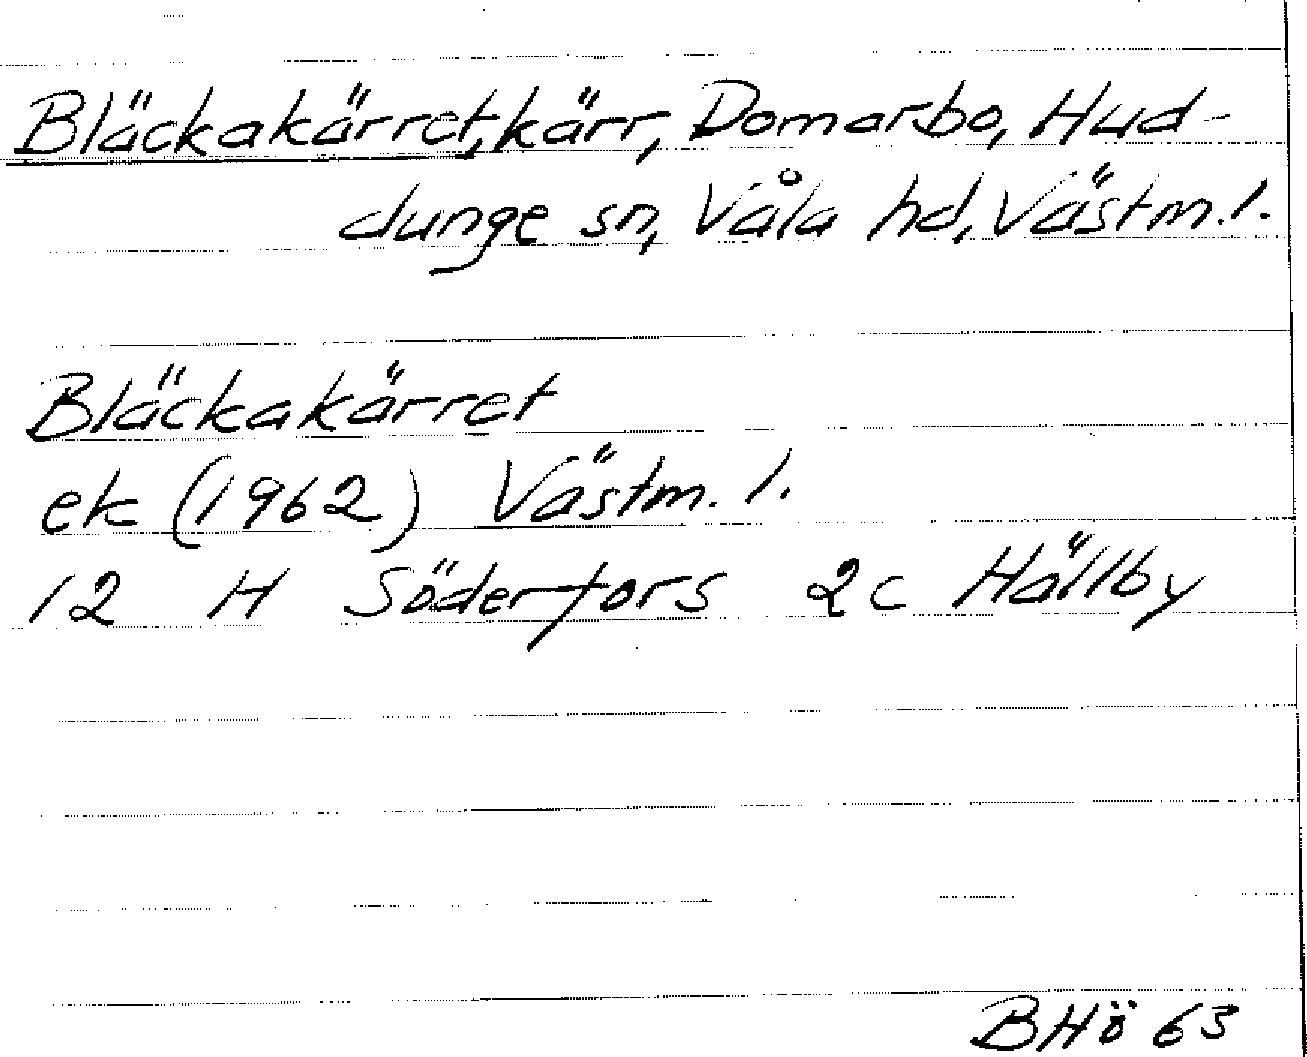 Bläckakärret, kärr, Domarbo, Hud-
dunge sn, Våla hd, Västm. l.
Bläckakärret
ek (1962) Västm. l.
12 H Söderfors 2c Hällby
BHö 63